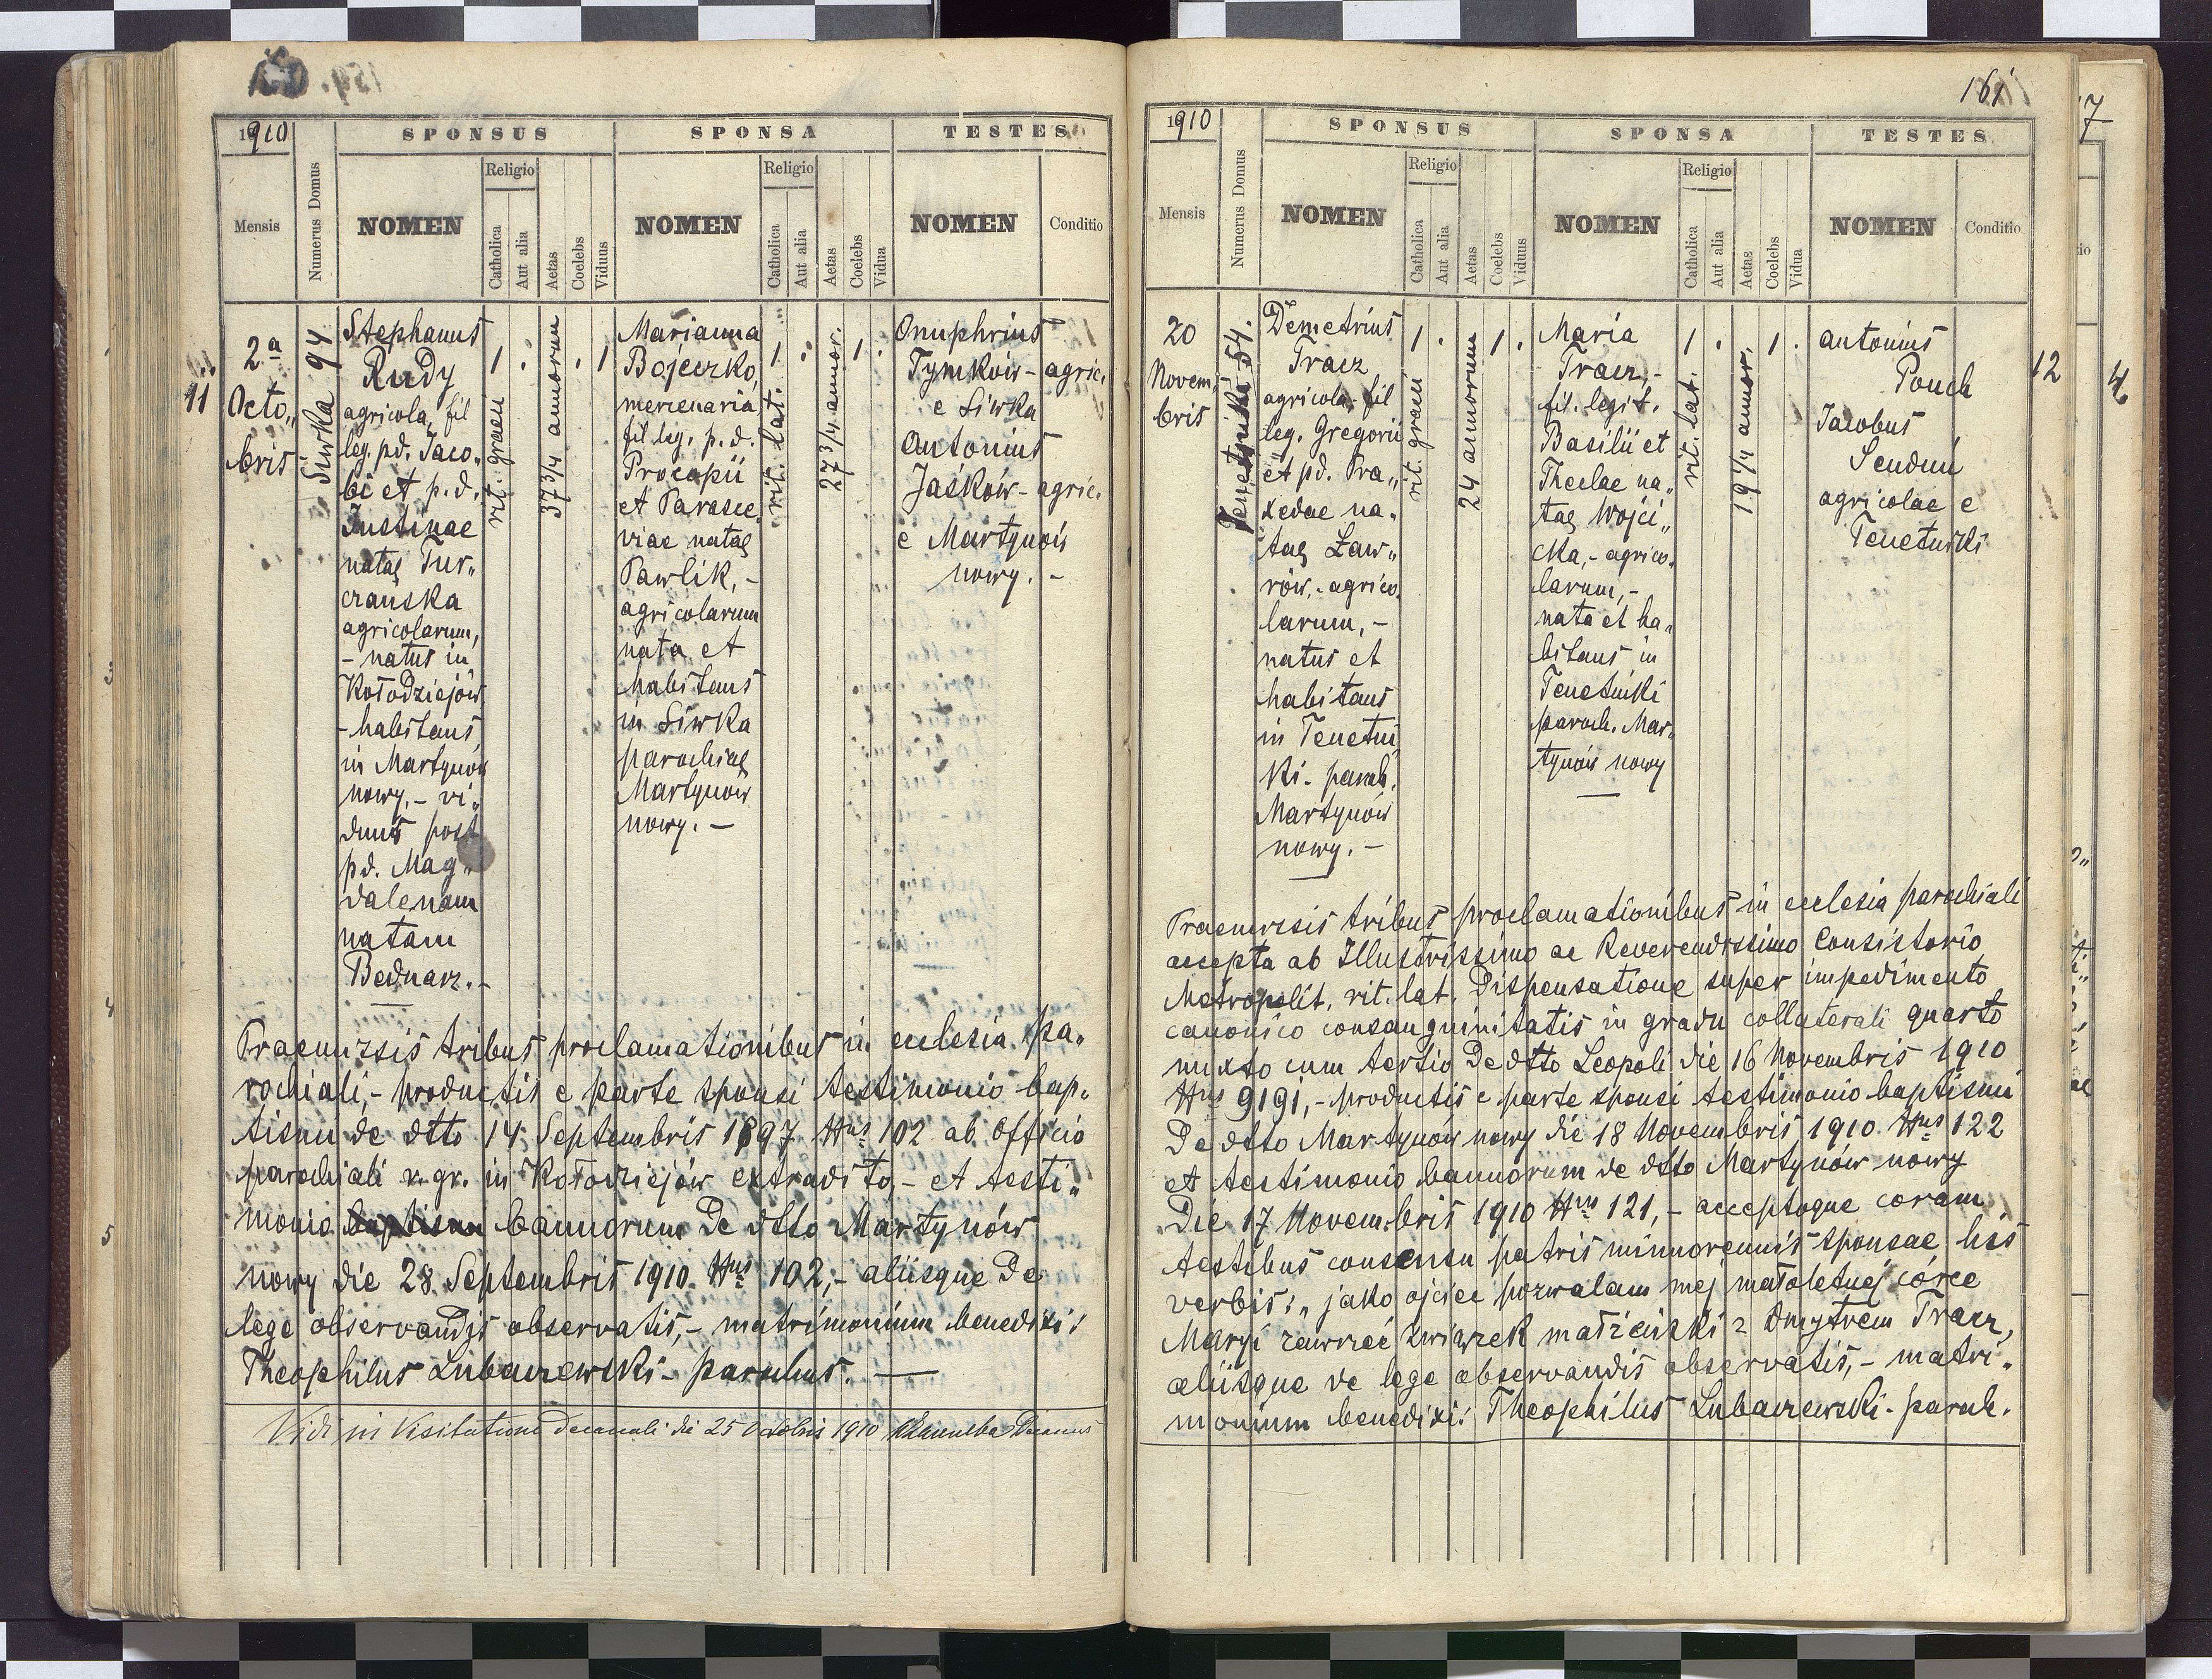 159.
1910
SPONSUS
SPONSA
TESTES
Mensis
Numerus Domus
NOMEN
Religio
Catholica
Aut alia
Aetas
Coelebs
Viduus
NOMEN
Religio
Catholica
Aut alia
Aetas
Coelebs
Vidua
NOMEN
Conditio
11
2a
Octo„
bris
Siwka 94
Stephanus
Rudy
agricola, fil
leg. pd. Jaco„
bi et p.d.
Justinae
natae Tur„
czanska
agricolarum,
- natus in
Kołodziejów
- habitans
in Martynów
nowy, - vi„
duus post
pd. Mag„
dalenam
natam
Bednarz. -
1 .
rit. graeci
37 3/4 annorum
. 1
Marianna
Bojeczko,
mercenaria,
fil. leg. p.d.
Procopii
et Parasce„
viae natae
Pawlik, -
agricolarum
nata et
habitans
in Siwka
parochiae
Martynów
nowy. -
1 .
rit. lat.
27 3/4 annor.
1 .
Onuphrius
Tymków - agric.
e Siwka
Antonius
Jaśków - agric.
e Martynów
nowy. -
Praemissis tribus proclamationibus in ecclesia pa„
rochiali, - productis e parte sponsi testimonio bap„
tismi de dtto 14 Septembris 1897 Nrus 102 ab officio
parochiali r. gr. in Kołodziejów extradito, - et testi„
monio baptismi bannorum de dtto Martynów
nowy die 28. Septembris 1910 Nrus 102, - aliisque de
lege observandis observatis, - matrimonium benedixi:
Theophilus Lubaczewski - parochus. -
Vidi in Visitatione decanali die 25 Octobris 1910 Decanus
161
1910
SPONSUS
SPONSA
TESTES
Mensis
Numerus Domus
NOMEN
Religio
Catholica
Aut alia
Aetas
Coelebs
Viduus
NOMEN
Religio
Catholica
Aut alia
Aetas
Coelebs
Vidua
NOMEN
Conditio
20
Novem„
bris
Tenetniki 54.
Demetrius
Tracz
agricola, fil
leg. Gregorii
et pd. Pra„
xedae na„
tae Ław„
rów, - agrico„
larum, -
natus et
habitans
in Tenetni„
ki - paroch.
Martynów
nowy. -
1 .
rit. graeci
24 annorum
1 .
Maria
Tracz, -
fil. legit.
Basilii et
Theclae na„
tae Wojci„
cka, - agrico„
larum, -
nata et ha„
bitans in
Tenetniki
paroch. Mar„
tynów nowy
1 .
rit. lat.
19 1/4 annor.
1 .
Antonius
Pouch
Jacobus
Senduń
agricolae e
Tenetniki
12
Praemissis tribus proclamationibus in ecclesia parochiali
accepta ab Illustrissimo ac Reverendissimo Consistorio
Metropolit. rit. lat. Dispensatione super impedimento
canonico consanguinitatis in gradu collaterali quarto
mixto cum tertio De dtto Leopoli die 16 Novembris 1910
Nrus 9191, - productis e parte sponsi testimonio baptismi
De dtto Martynów nowy die 18 Novembris 1910 Nrus 122
et testimonio bannorum de dtto Martynów nowy
Die 17 Novembris 1910 Nrus 121, - acceptoque coram
testibus consensu patris minnorennis sponsae his
verbis: „jako ojciec pozwalam mej małoletniej córce
Maryi zawrzeć związek małżeński z Dmytrem Tracz,
aliisque de lege observandis observatis, - matri„
monium benedixi: Theophilus Lubaczewski - paroch.
3
4
5
7